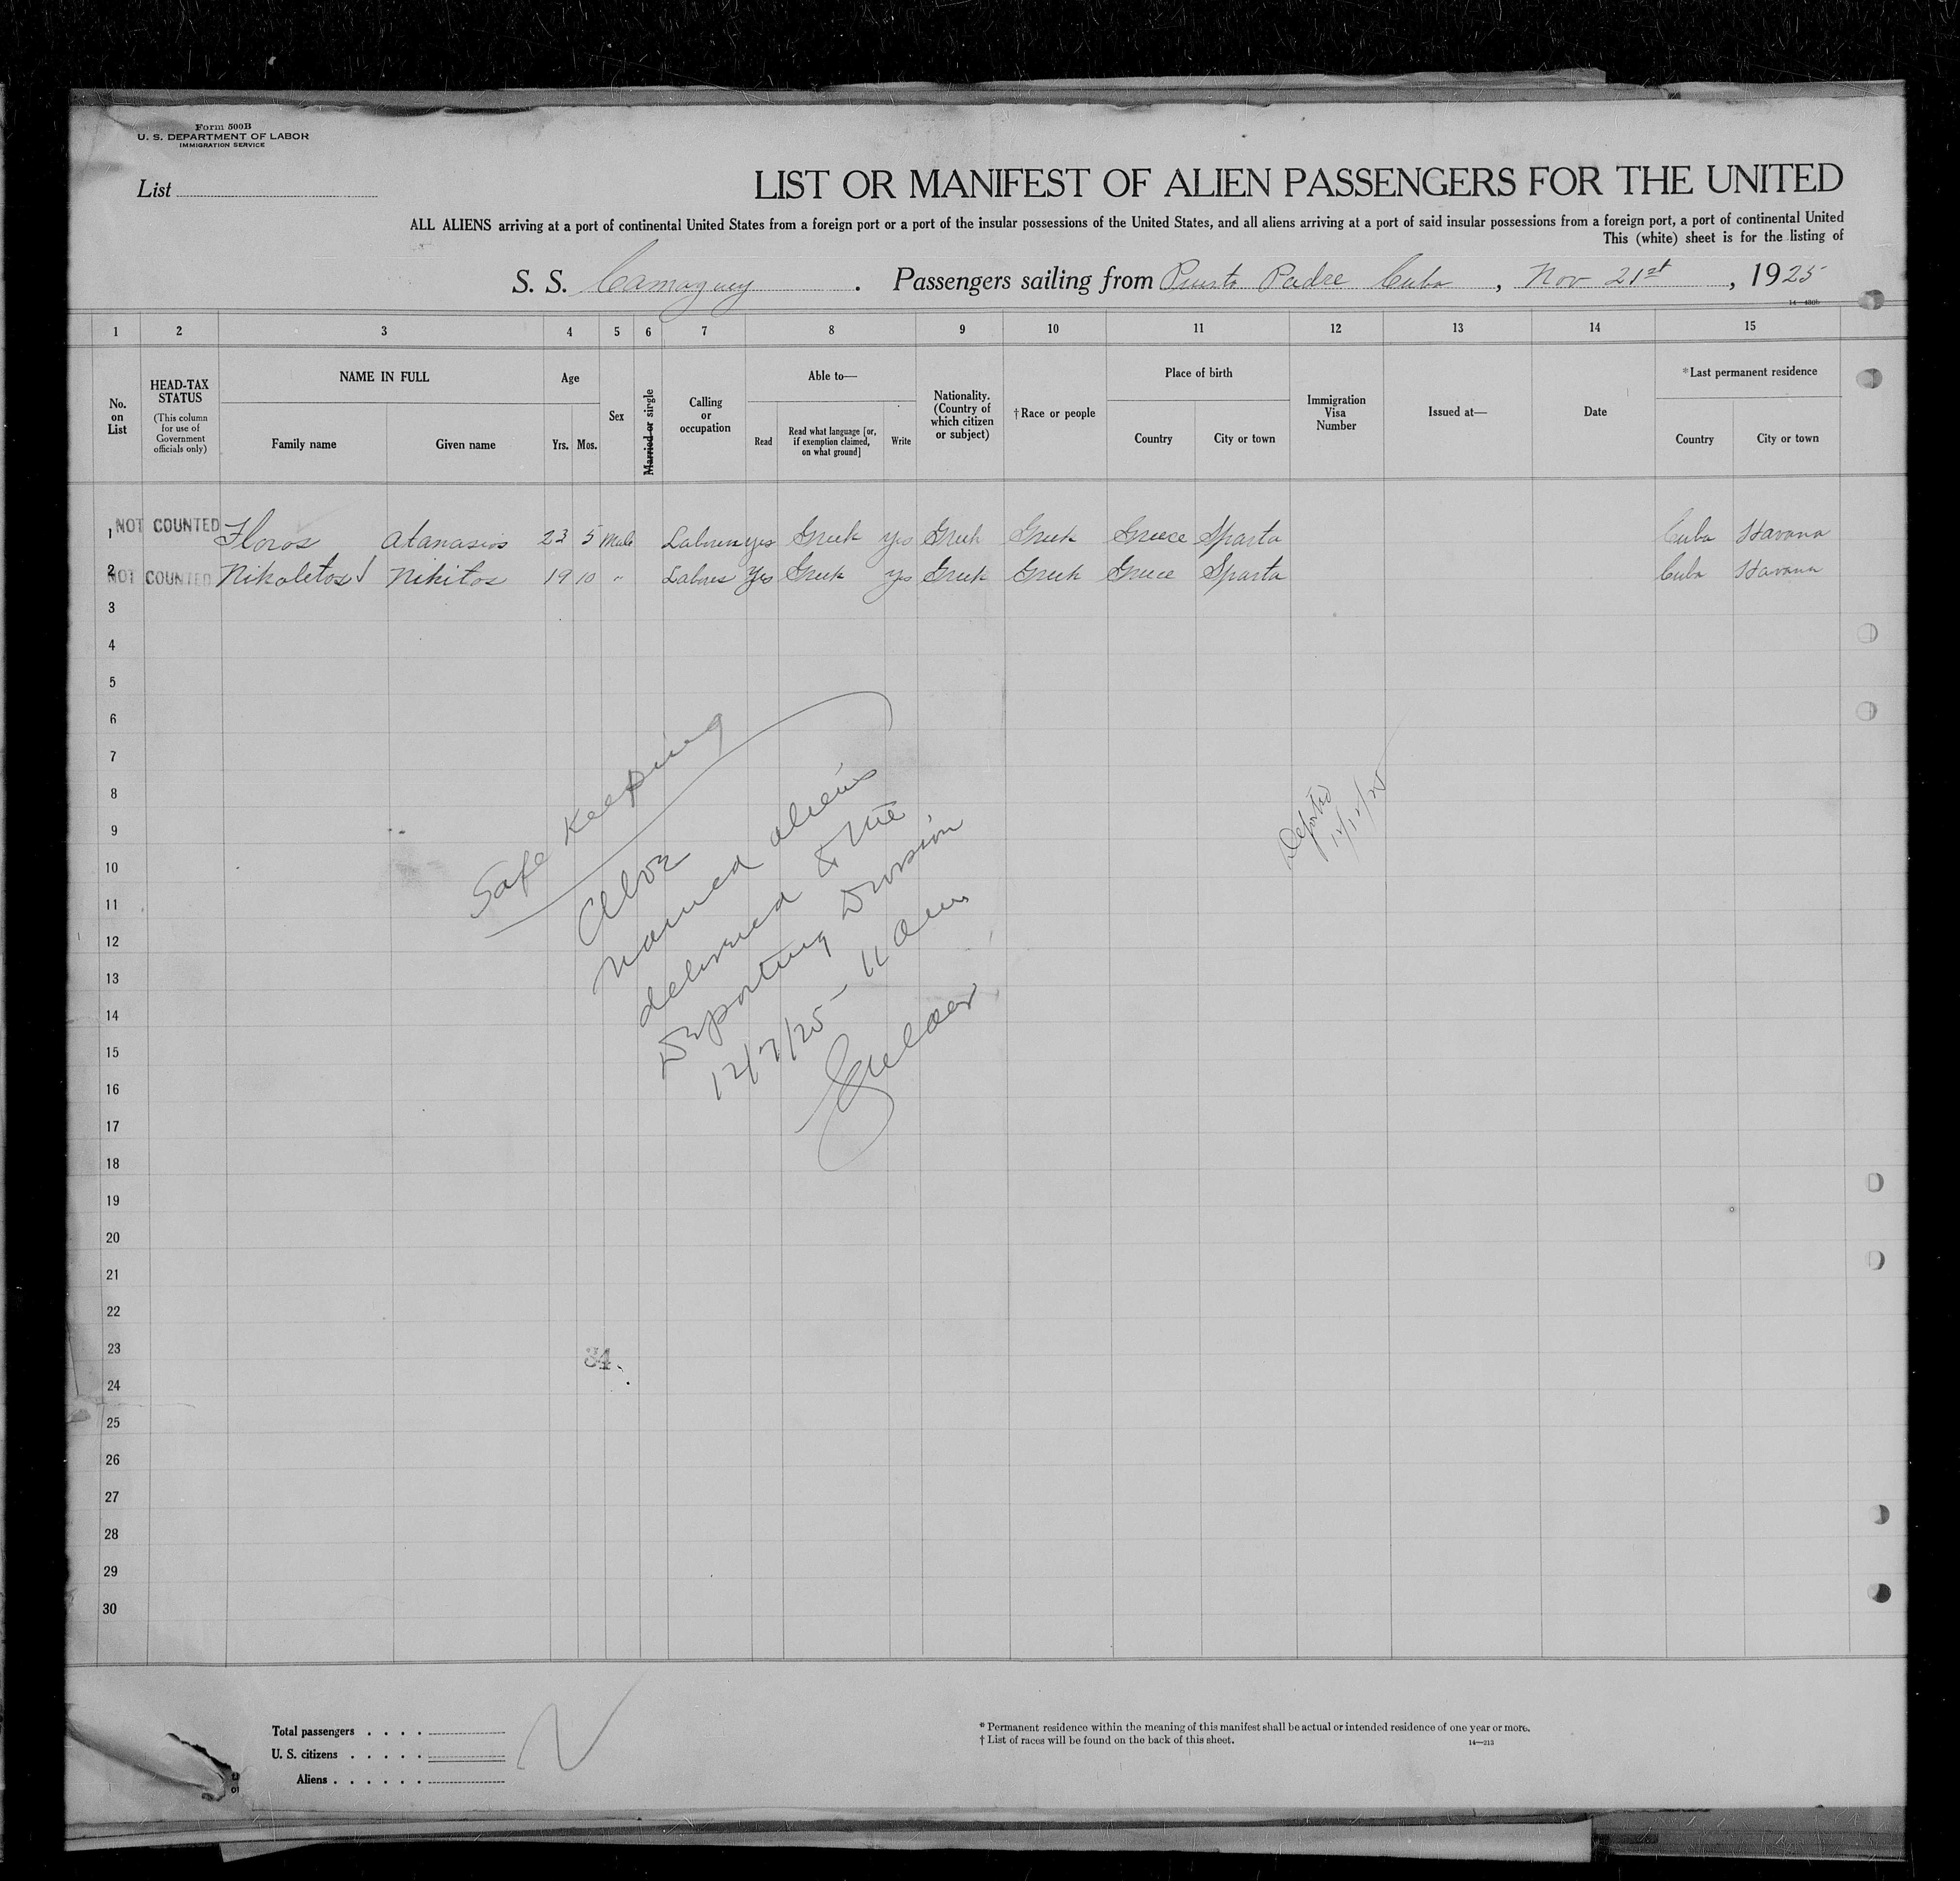 Form 500B
U. S. DEPARTMENT OF LABOR
IMMIGRATION SERVICE
List
LIST OR MANIFEST OF ALIEN PASSENGERS FOR THE UNITED
ALL ALIENS arriving at a port of continental United States from a foreign port or a port of the insular possessions of the United States, and all aliens arriving at a port of said insular possessions from a foreign port, a port of continental United
This (white) sheet is for the listing of
S. S. Camaguey . Passengers sailing from Puerto Padre Cuba , Nov 21st , 1925
1 2 3 4 5 6 7 8 9 10 11 12 13 14 15
No. on List
HEAD-TAX STATUS
(This column for use of Government officials only)
NAME IN FULL
Family name Given name
Age
Yrs. Mos.
Sex
Married or single
Calling or occupation
Able to—
Read
Read what language [or, if exemption claimed, on what ground]
Write
Nationality. (Country of which citizen or subject)
†Race or people
Place of birth
Country City or town
Immigration Visa Number
Issued at—
Date
*Last permanent residence
Country City or town
1 NOT COUNTED Floros Atanasios 23 5 Male Laborer yes Greek yes Greek Greek Greece Sparta Cuba Havana
2 NOT COUNTED Nikoletos Nikitos 19 10 " Laborer Yes Greek yes Greek Greek Greece Sparta Cuba Havana
3
4
5
6
7
8
9
10
11
12
13
14
15
16
17
18
19
20
21
22
23
24
25
26
27
28
29
30
Safe Keeping
Above
named aliens
delivered to the
Deporting Division
12/7/25 - 11 am
Deported
84
Total passengers . . . .
U. S. citizens . . . . .
Aliens . . . . . .
* Permanent residence within the meaning of this manifest shall be actual or intended residence of one year or more.
† List of races will be found on the back of this sheet.
14—213